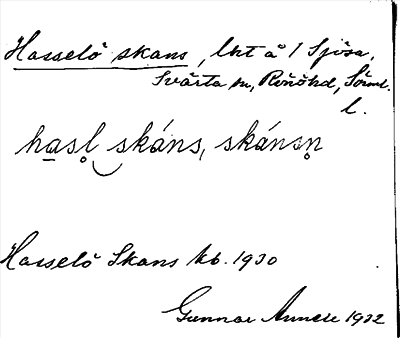 Hasselö skans, lht å 1 Sjösa,
Svärta sn, Rönö hd, Sörml.
l.
hasl̥ skáns, skánsn̥
Hasselö Skans kb. 1930
Gunnar 1932